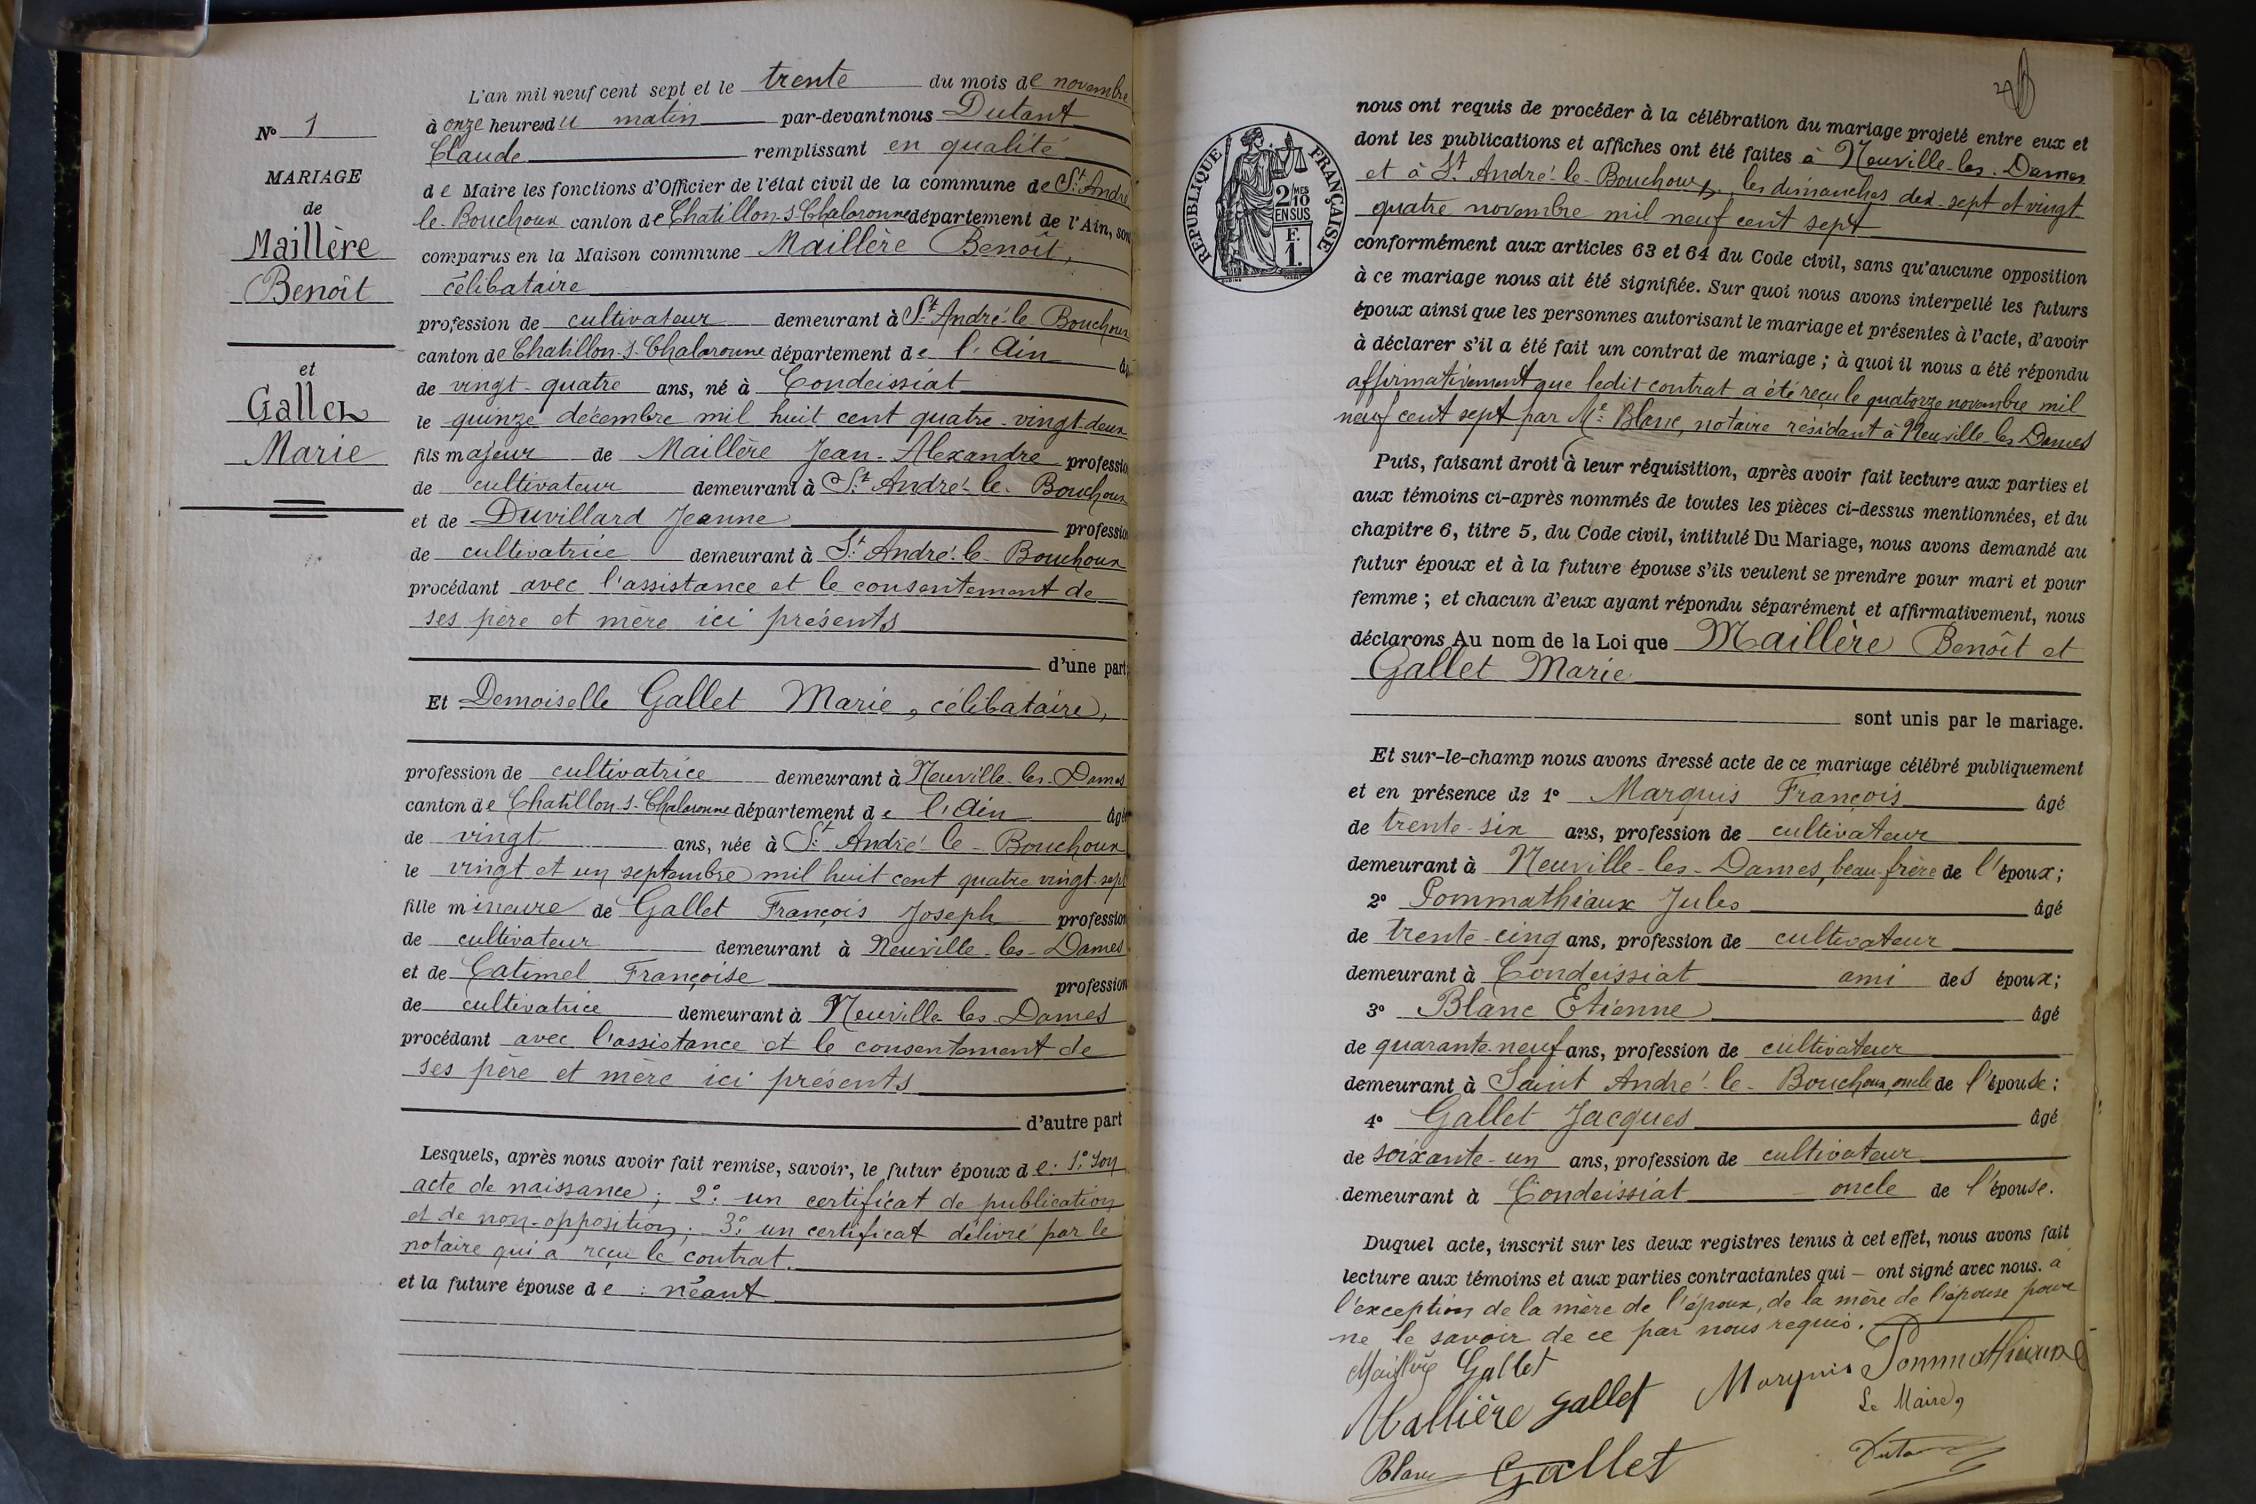 N° 1
MARIAGE
de
Maillère
Benoît
et
Gallet
Marie
L'an mil neuf cent sept et le trente du mois de novembre
à onze heures du matin par-devant nous Dutant
Claude remplissant en qualité
de Maire les fonctions d'Officier de l'état civil de la commune de St André
le-Bouchoux canton de Chatillon-s-Chalaronne département de l'Ain, son
comparus en la Maison commune Maillère Benoît,
célibataire
profession de cultivateur demeurant à St André-le Bouchoux
canton de Chatillon-s-Chalaronne département de l'Ain âg
de vingt-quatre ans, né à Condeissiat
le quinze décembre mil huit cent quatre-vingt-deux
fils majeur de Maillère Jean-Alexandre professio
de cultivateur demeurant à St André-le-Bouchoux
et de Duvillard Jeanne professio
de cultivatrice demeurant à St André-le-Bouchoux
procédant avec l'assistance et le consentement de
ses père et mère ici présents
d'une part
Et Demoiselle Gallet Marie, célibataire,
profession de cultivatrice demeurant à Neuville-les-Dames
canton de Chatillon-s-Chalaronne département de l'Ain âgé
de vingt ans, née à St André-le-Bouchoux
le vingt et un septembre mil huit cent quatre vingt-sept
fille mineure de Gallet François Joseph profession
de cultivateur demeurant à Neuville-les-Dames
et de Catimel Françoise profession
de cultivatrice demeurant à Neuville-les-Dames
procédant avec l'assistance et le consentement de
ses père et mère ici présents
d'autre part
Lesquels, après nous avoir fait remise, savoir, le futur époux de: 1° son
acte de naissance; 2° un certificat de publication
et de non-opposition; 3° un certificat délivré par le
notaire qui a reçu le contrat.
et la future épouse de : néant
REPUBLIQUE FRANÇAISE
2 MES
10
EN SUS
F.
1.
nous ont requis de procéder à la célébration du mariage projeté entre eux et
dont les publications et affiches ont été faites à Neuville-les-Dames
et à St André-le-Bouchoux, les dimanches dix-sept et vingt
quatre novembre mil neuf cent sept
conformément aux articles 63 et 64 du Code civil, sans qu'aucune opposition
à ce mariage nous ait été signifiée. Sur quoi nous avons interpellé les futurs
époux ainsi que les personnes autorisant le mariage et présentes à l'acte, d'avoir
à déclarer s'il a été fait un contrat de mariage; à quoi il nous a été répondu
affirmativement que ledit contrat a été reçu le quatorze novembre mil
neuf cent sept par Me Blanc, notaire résidant à Neuville-les-Dames
Puis, faisant droit à leur réquisition, après avoir fait lecture aux parties et
aux témoins ci-après nommés de toutes les pièces ci-dessus mentionnées, et du
chapitre 6, titre 5, du Code civil, intitulé Du Mariage, nous avons demandé au
futur époux et à la future épouse s'ils veulent se prendre pour mari et pour
femme; et chacun d'eux ayant répondu séparément et affirmativement, nous
déclarons Au nom de la Loi que Maillère Benoît et
Gallet Marie
sont unis par le mariage.
Et sur-le-champ nous avons dressé acte de ce mariage célébré publiquement
et en présence de 1° Marquis François âgé
de trente-six ans, profession de cultivateur
demeurant à Neuville-les-Dames, beau-frère de l'époux;
2° Pommathiaux Jules âgé
de trente-cinq ans, profession de cultivateur
demeurant à Condeissiat ami des époux;
3° Blanc Etienne âgé
de quarante-neuf ans, profession de cultivateur
demeurant à Saint André-le-Bouchoux, oncle de l'épouse;
4° Gallet Jacques âgé
de soixante-un ans, profession de cultivateur
demeurant à Condeissiat oncle de l'épouse.
Duquel acte, inscrit sur les deux registres tenus à cet effet, nous avons fait
lecture aux témoins et aux parties contractantes qui – ont signé avec nous. à
l'exception de la mère de l'époux, de la mère de l'épouse pour
ne le savoir de ce par nous requis.
Maillère Gallet
Mallière Gallet Marquis Pommathiaux
Le Maire,
Blanc Gallet Dutant